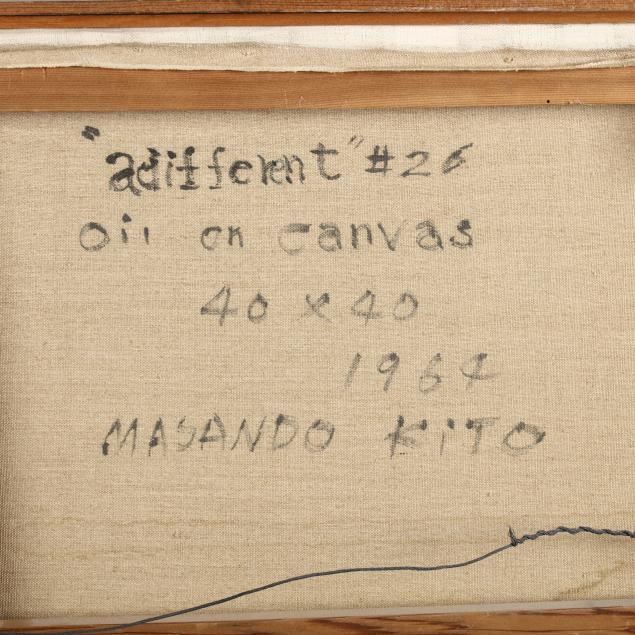 "adifferent" #26
oil on canvas
40 x 40
1964
MASANDO KITO